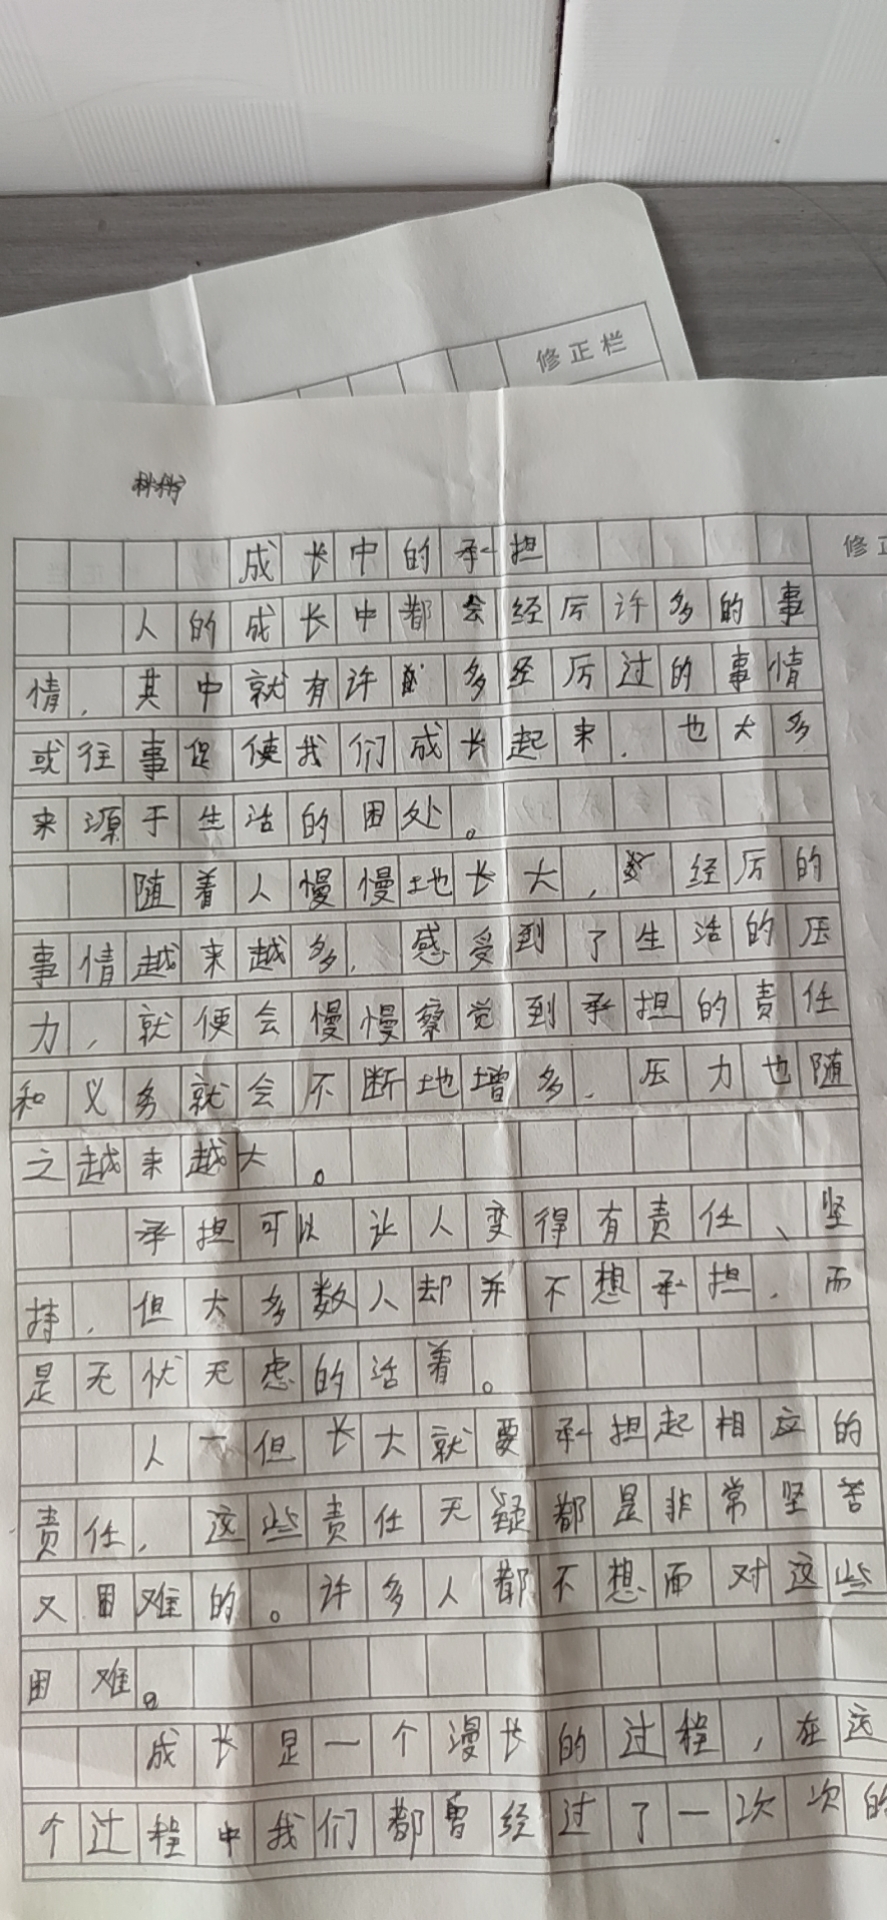 修正栏
修正
成长中的承担
人的成长中都会经厉许多的事
情，其中就有许多经厉过的事情
或往事促使我们成长起来，也大多
来源于生活的困处。
随着人慢慢地长大，经厉的
事情越来越多，感受到了生活的压
力，就便会慢慢察觉到承担的责任
和义务就会不断地增多，压力也随
之越来越大。
承担可以让人变得有责任、坚
持，但大多数人却并不想承担，而
是无忧无虑的活着。
人一但长大就要承担起相应的
责任，这些责任无疑都是非常坚苦
又困难的。许多人都不想面对这些
困难。
成长是一个漫长的过程，在这
个过程中我们都曾经过了一次次的